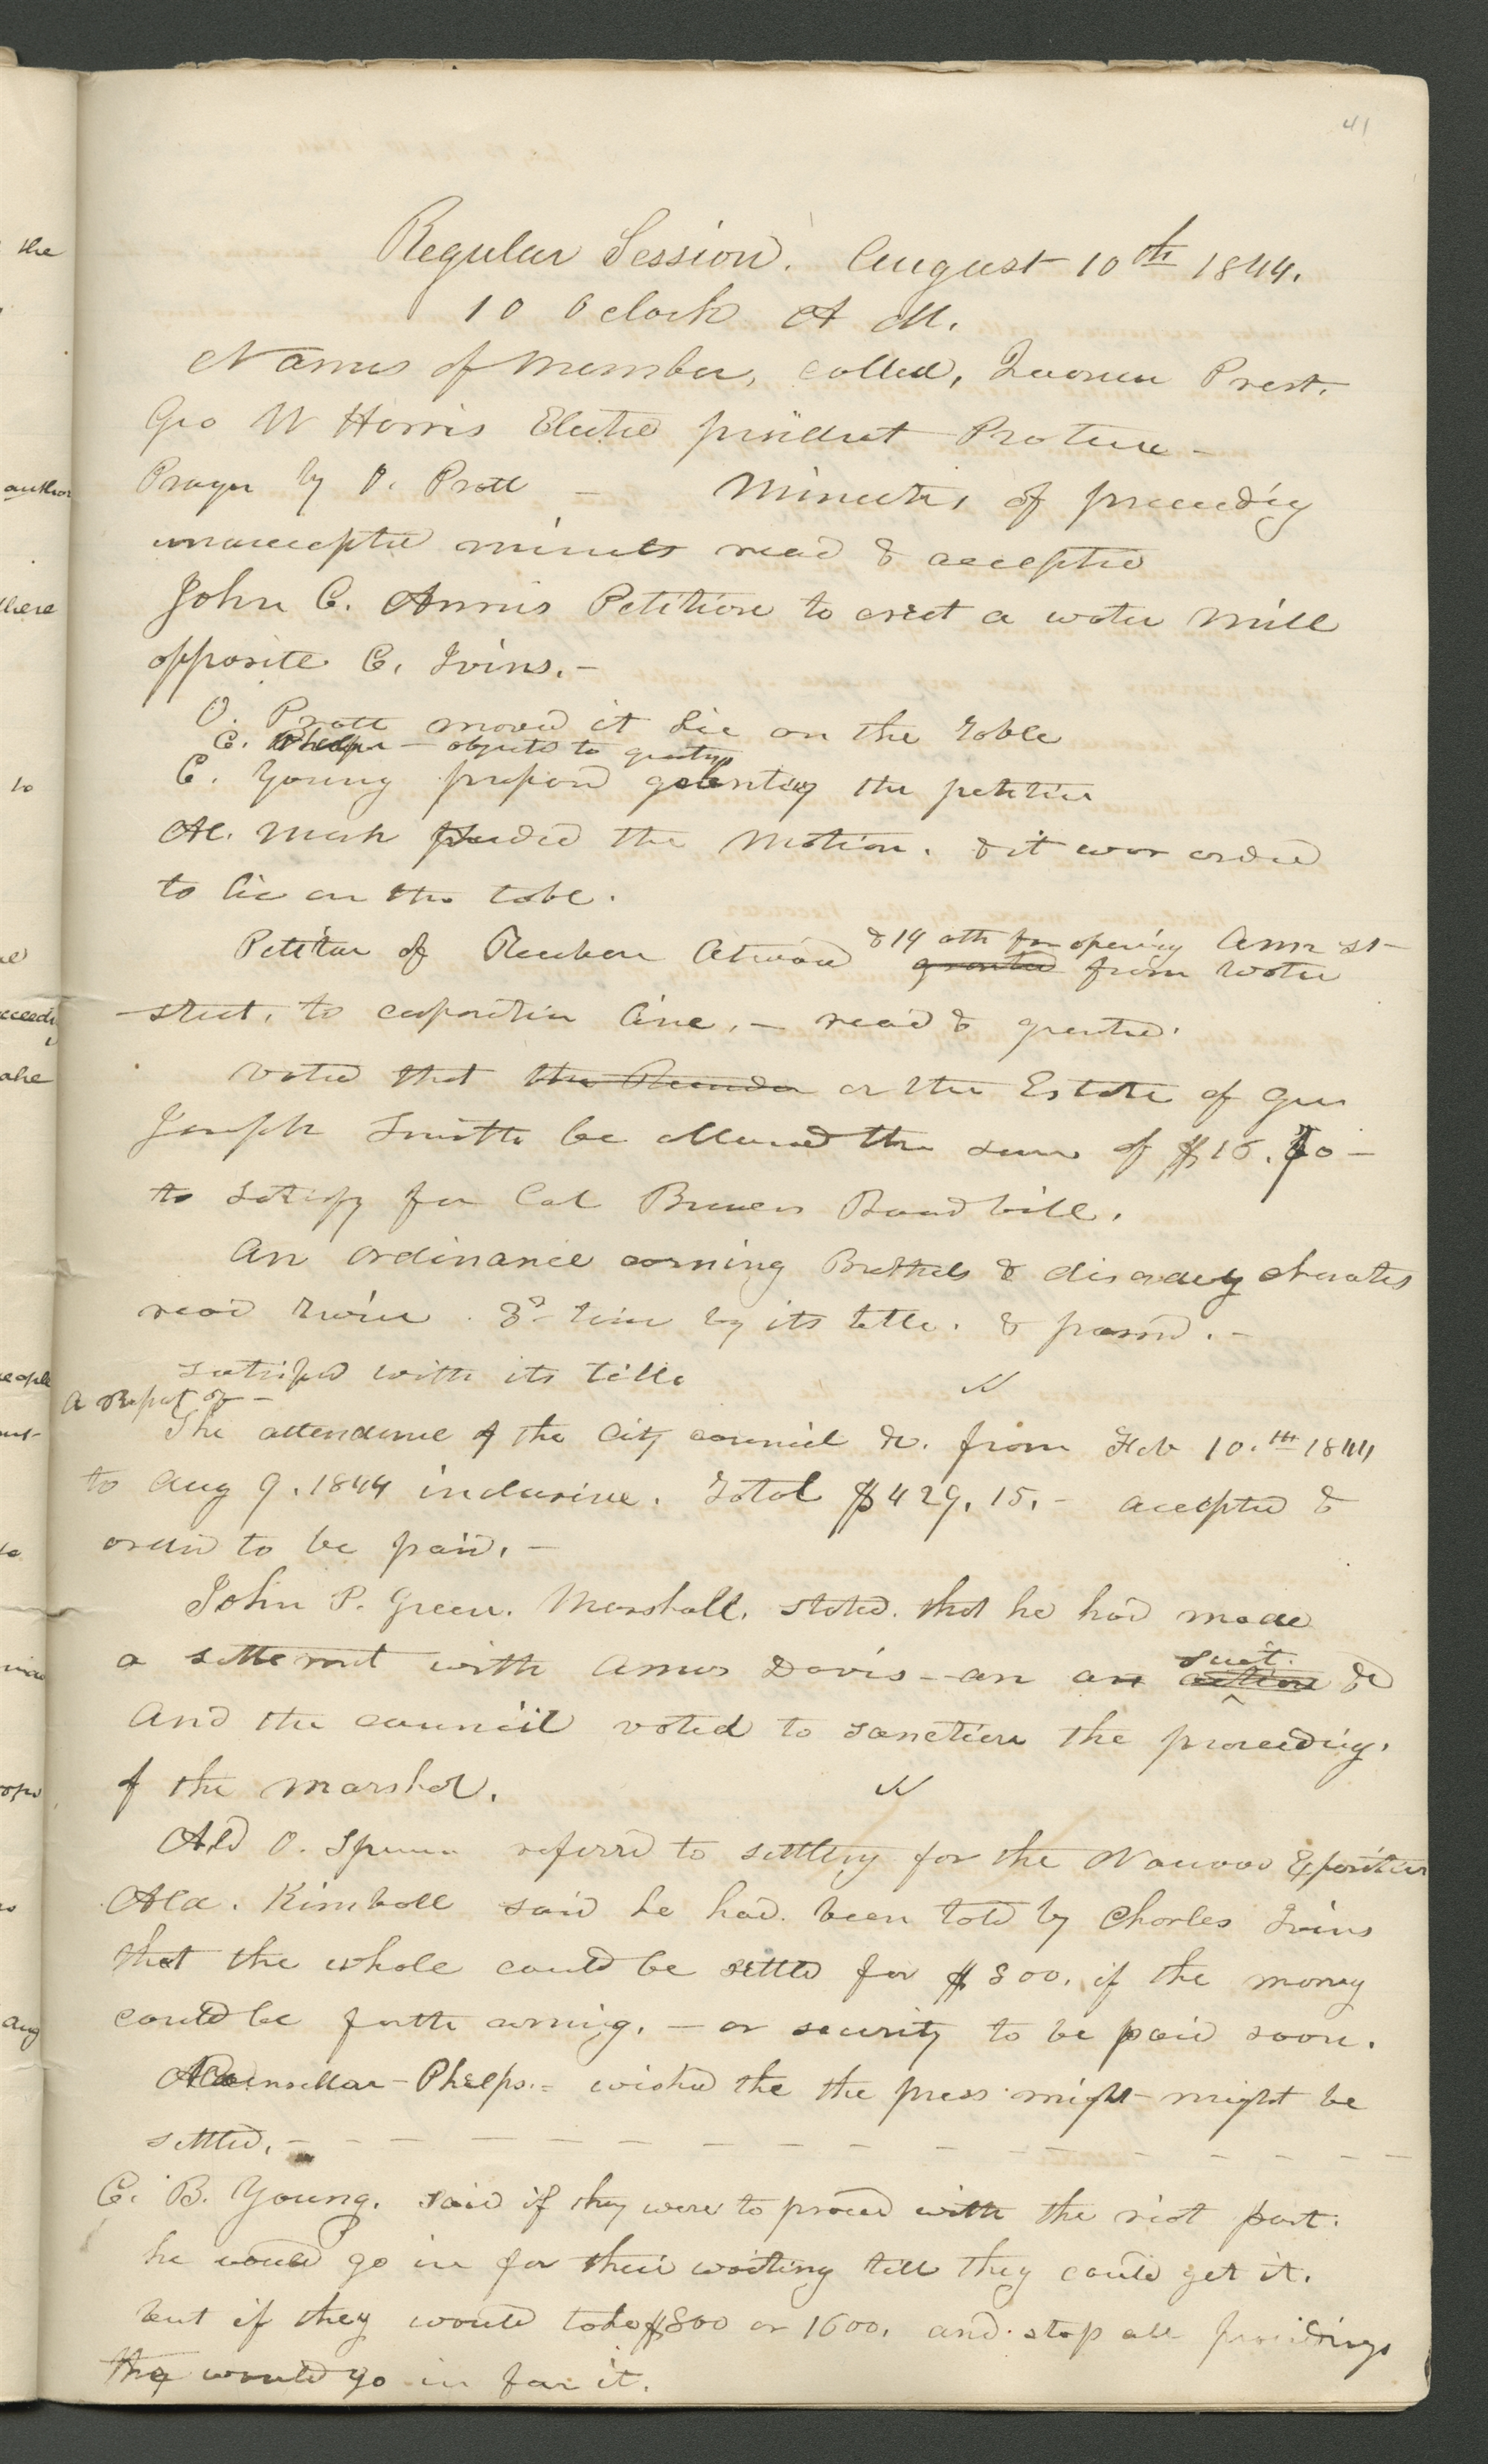 41
Regular Session. August 10th 1844.
10 o clock A M.
Names of Member, called, Quorum Prest.
Geo W Harris Elected president Protem -
Prayer by O. Pratt - Minutes of preceedig
unaccepted minuts read & accepted
John C. Annis Petition to erect a water mill
opposite C. Ivins. -
O. Pratt moved it lie on the table
C. Phelps - objects to grantig
C. Young prepsed granting the petition
Al. Marks seconded the Motion. & it was ordered
to lie on the table.
Petition of Reuben Atwood & 19 oth for opening Amn st
granted from water
street, to corporation line. - read & granted.
voted that the or the Estate of Gen
Joseph Smith be allowed the sum of $15.
to satisfy for Cal Brewers Board bill.
An ordinance corning Brothels & disordely charates
read twice. 3d time by its title. & passd. -
satisfied with its title
A Report of -
The attendence of the City council &c. from Feb 10.th 1844
to Aug 9. 1844 inclusive. Total $429.15. - accepted &
orderd to be paid. -
John P. Green. Marshall. stated. that he had made
a settlement with Amos Davis - an an suit.
action &c
And the council voted to sanction the proceedig.
of the marshal.
Ald O. Spencer referrd to settlig for the Nauvoo Expositor
Ald. Kimball said he had been told by Charles Ivins
that the whole could be settld for $800. if the money
could be forth coming. - or security to be paid soon.
Councillor - Phelps. - wished the the press might might be
settled. -
C. B. Young. said if they were to proceed with the riot part.
he would go in for their waiting till they could get it.
but if they would take $800 or 1600. and stop all proceedings
they would go in for it.
the
author
there
to
people
Aug